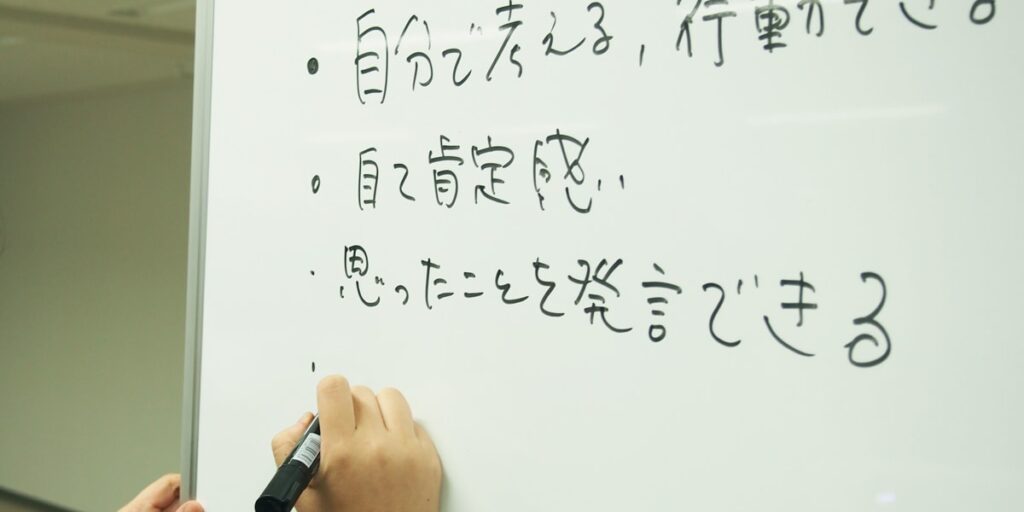 ・自分で考える，行動ができる
・自己肯定感
・思ったことを発言できる
・